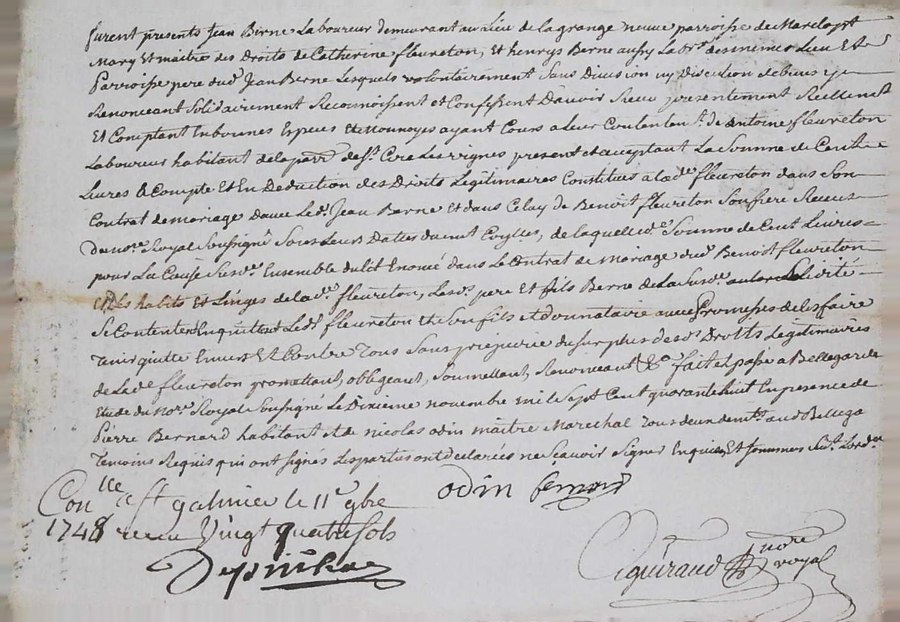 furent presents Jean Berne Laboureur demeurant au lieu de la grange neuve parroisse de Marclopt
Mary et maitre des Droits de Catherine fleureton, Et henrys Berne aussy Lab.r des memes Lieu Et
Parroisse pere dud. Jean Berne Lesquels volontairement sans Division ny Discution de biens y
Renonceant Solidairement Reconnoissent et Confessent D'avoir Receu presentement Reellement
Et Comptant En bonnes Especes Et monnoyes ayant Cours a leur Contentem.t de Antoine fleureton
Laboureur habitant de la parr. de S.t Cire Les vignes present et acceptant La Somme de Cent
Livres a Compte Et En Deduction des Droits Legitimaires Constitues a lad.e fleureton dans Son
Contrat de mariage d'avec Led. Jean Berne Et dans Celuy de Benoit fleureton Son frere Receus
du no.re Royal Soussigné Sous Leurs Dattes de laquelle d.e Somme de Cent Livres
pour La Cause Susd.e Ensemble du lit Enoncé dans Le Contrat de Mariage dud. Benoist fleureton
Et des habits Et Linges de lad.e fleureton, Lesd. pere Et fils Berne de La Susd.e solidité
Se Contentent En quittent Led. fleureton Son fils Et donnataire avec Promesses de les faire
tenir quitte Envers Et Contre Tous Sans prejudice du Surplus desd. Droits Legitimaires
de Lad.e fleureton promettant, obligeant, Soumettant, Renonceant &c. fait et passé a Bellegarde
Etude du No.re Royal Soussigné Le Dixieme novembre mil Sept Cent quarante huit En presence de
Pierre Bernard habitant Et de Nicolas odin maitre Marechal Tous deux dem.ts aud. Bellega
Temoins Requis qui ont signés Les parties ont declarées ne Scavoir Signer Enquises Et Sommees
odin
Con.lle a S.t galmier le 11.e 9bre
1748 receu Vingt quatre sols
Ciguiraud no.re royal